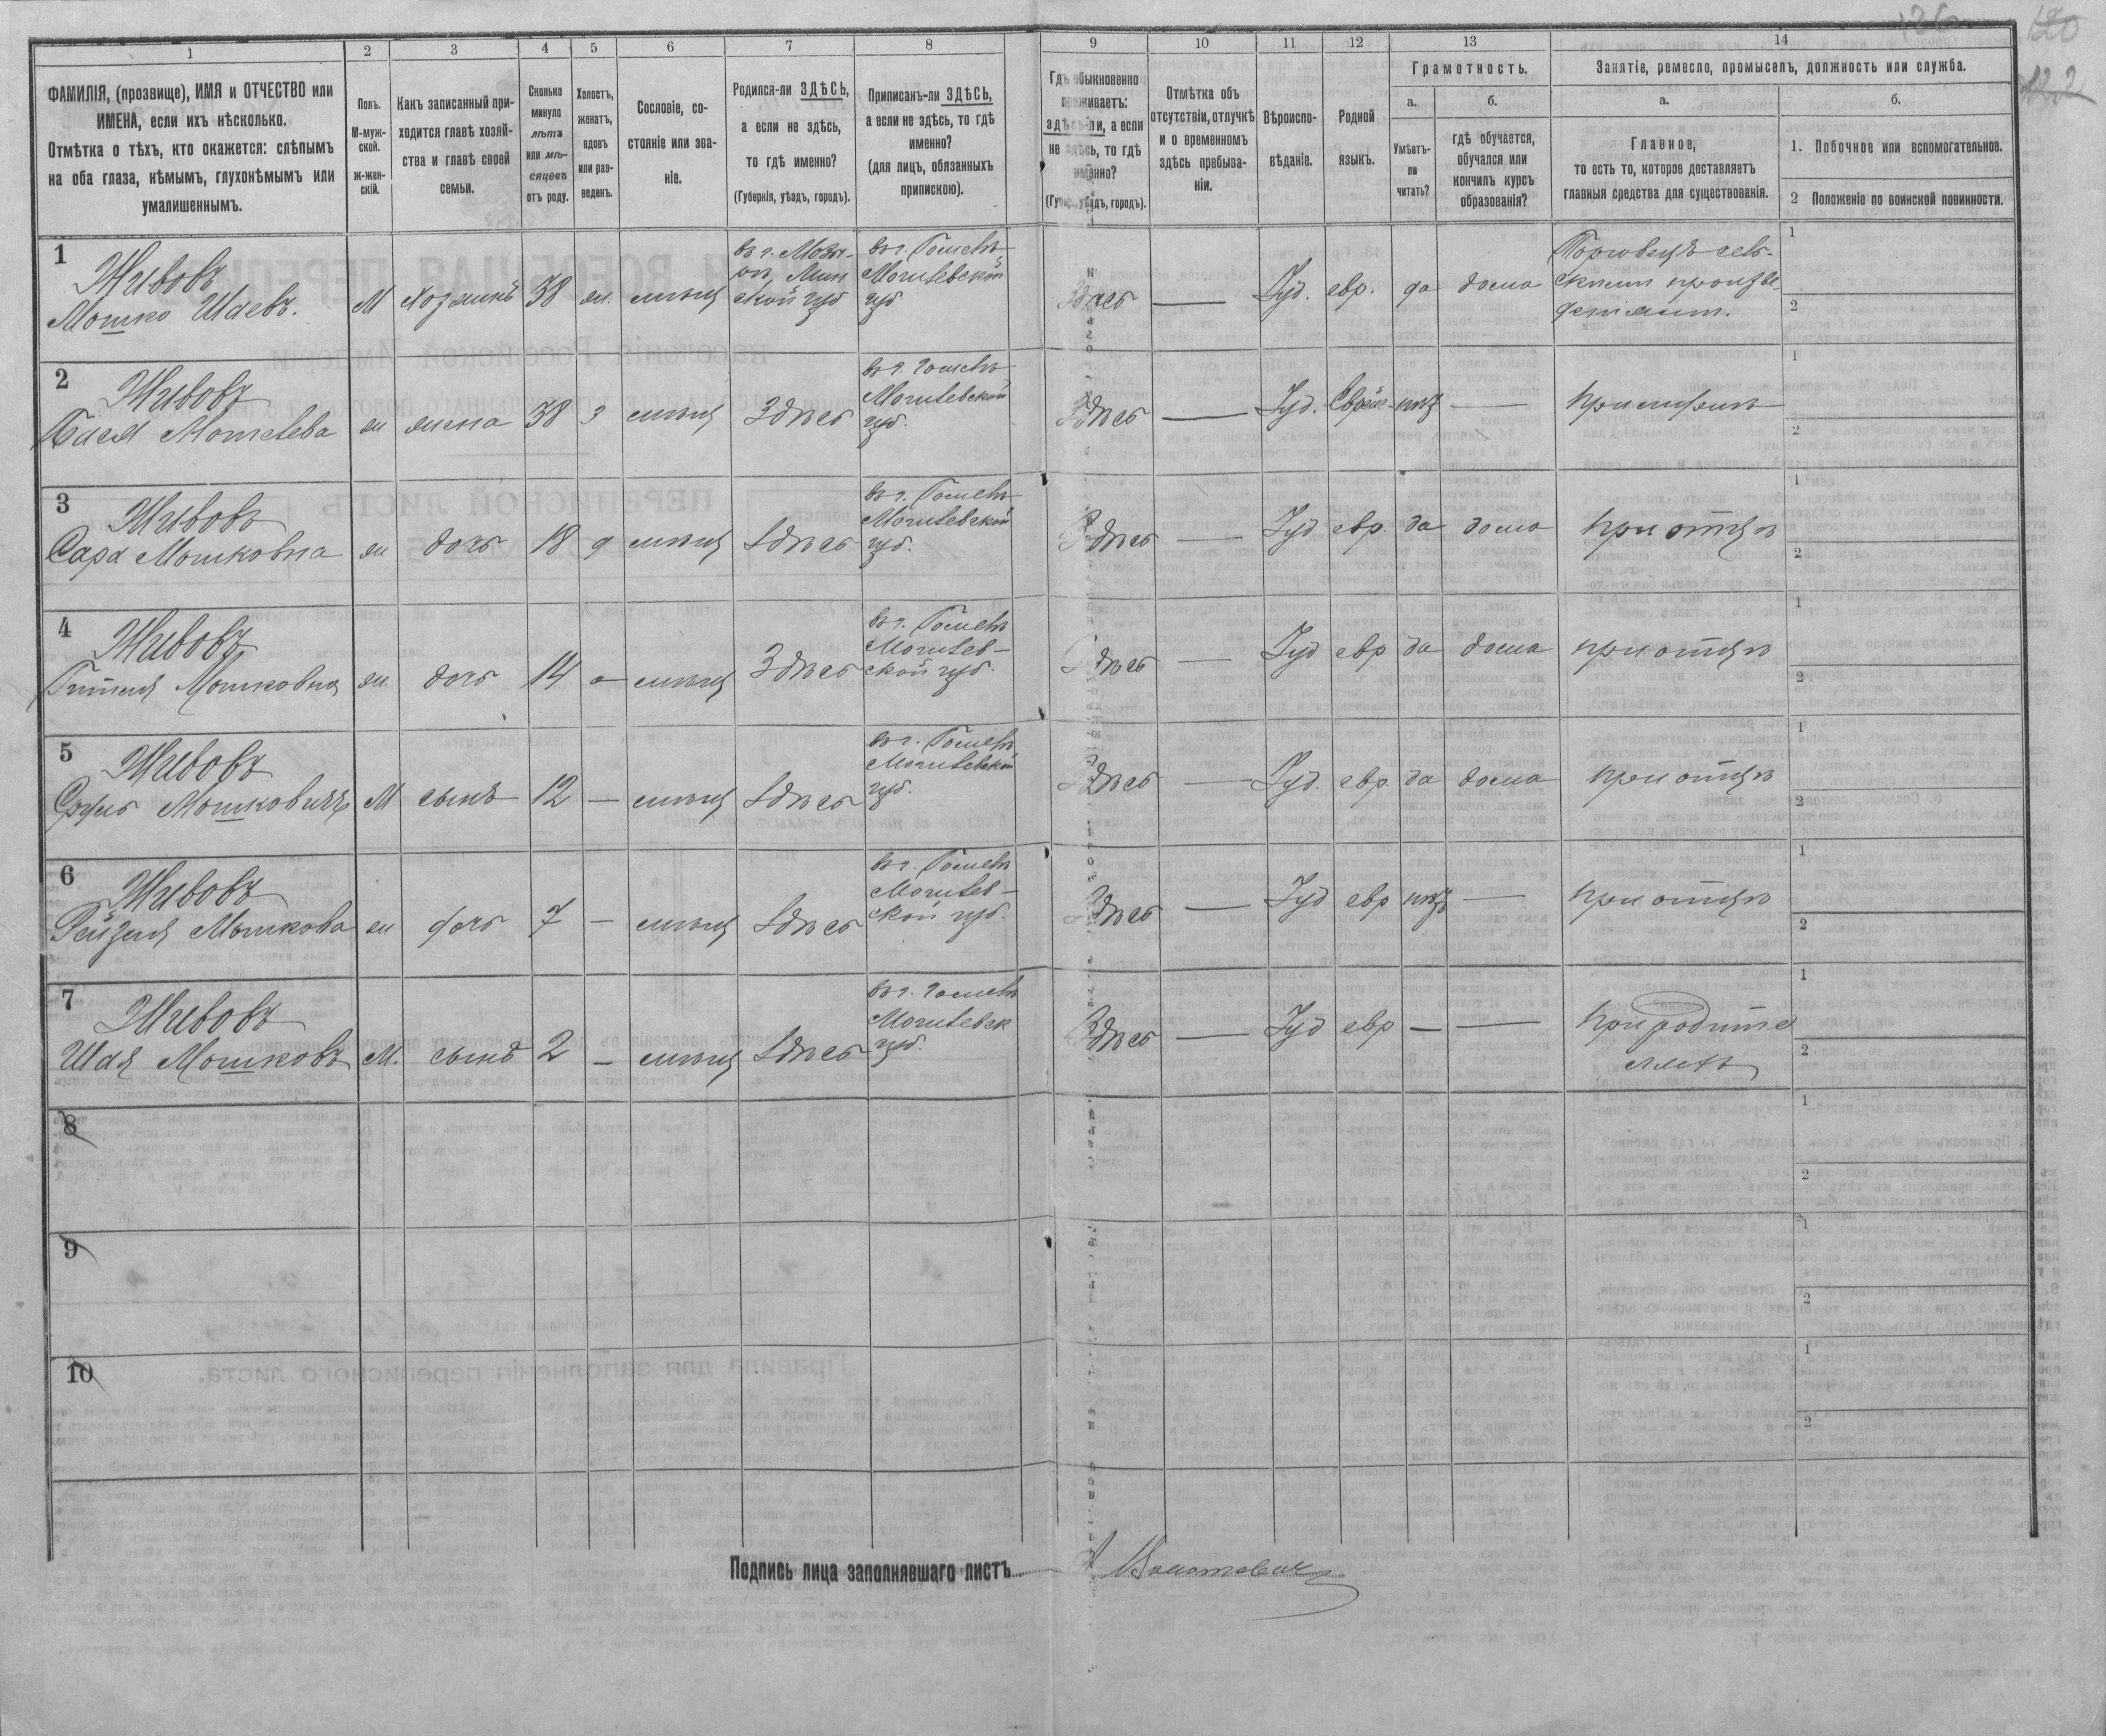 120
122
1 2 3 4 5 6 7 8 9 10 11 12 13 14
ФАМИЛІЯ, (прозвище), ИМЯ и ОТЧЕСТВО или
ИМЕНА, если ихъ нѣсколько.
Отмѣтка о тѣхъ, кто окажется: слѣпымъ
на оба глаза, нѣмымъ, глухонѣмымъ или
умалишеннымъ.
Полъ.
М-муж-
ской.
ж-жен-
скій.
Какъ записанный при-
ходится главѣ хозяй-
ства и главѣ своей
семьи.
Сколько
минуло
лѣтъ
или мѣ-
сяцевъ
отъ роду.
Холостъ,
женатъ,
вдовъ
или раз-
веденъ.
Сословіе, со-
стояніе или зва-
ніе.
Родился-ли ЗДѢСЬ,
а если не здѣсь,
то гдѣ именно?
(Губернія, уѣздъ, городъ).
Приписанъ-ли ЗДѢСЬ,
а если не здѣсь, то гдѣ
именно?
(для лицъ, обязанныхъ
припискою).
Гдѣ обыкновенно
проживаетъ:
здѣсь-ли, а если
не здѣсь, то гдѣ
именно?
(Губ., уѣздъ, городъ).
Отмѣтка объ
отсутствіи, отлучкѣ
и о временномъ
здѣсь пребыва-
ніи.
Вѣроиспо-
вѣданіе.
Родной
языкъ.
Грамотность.
а.
Умѣетъ-
ли
читать?
б.
гдѣ обучается,
обучался или
кончилъ курсъ
образованія?
Занятіе, ремесло, промыселъ, должность или служба.
а.
Главное,
то есть то, которое доставляетъ
главныя средства для существованія.
б.
1. Побочное или вспомогательное.
2 Положеніе по воинской повинности.
1
Живовъ
Мошко Шаевъ.
М
Хозяинъ
38
ж.
мѣщ
въ г. Мозы-
рѣ, Мин
ской губ
въ г. Гомелѣ
Могилевской
губ
Здѣсь
—
Іуд.
евр.
да
дома
Торговецъ сель-
скими произве-
деніями.
1
2
2
Живовъ
Бася Мотелева
ж
жена
38
з
мѣщ
Здѣсь
въ г. Гомелѣ
Могилевской
губ.
Здѣсь
—
Іуд.
Еврейс
нѣт
—
При мужѣ
1
2
3
Живовъ
Сара Мошковна
ж
дочь
18
д
мѣщ
Здѣсь
въ г. Гомелѣ
Могилевской
губ.
Здѣсь
—
Іуд
евр.
да
дома
При отцѣ
1
2
4
Живовъ
Гитля Мошковна
ж.
дочь
14
—
мѣщ
Здѣсь
въ г. Гомелѣ
Могилев-
ской губ.
Здѣсь
—
Іуд
евр
да
дома
при отцѣ
1
2
5
Живовъ
Мошковичъ
М
сынъ
12
—
мѣщ
Здѣсь
въ г. Гомелѣ
Могилевской
губ.
Здѣсь
—
Іуд.
евр.
да
дома
при отцѣ
1
2
6
Живовъ
Рейзля Мошкова
ж
дочь
7
—
мѣщ
Здѣсь
въ г. Гомелѣ
Могилев-
ской губ.
Здѣсь
—
Іуд
евр
нѣт
—
при отцѣ
1
2
7
Живовъ
Шая Мошковъ
М.
сынъ
2
—
мѣщ
Здѣсь
въ г. Гомелѣ
Могилевск
губ.
Здѣсь
—
Іуд
евр
—
—
При родите
ляхъ
1
2
8
1
2
9
1
2
10
1
2
Подпись лица заполнявшаго листъ